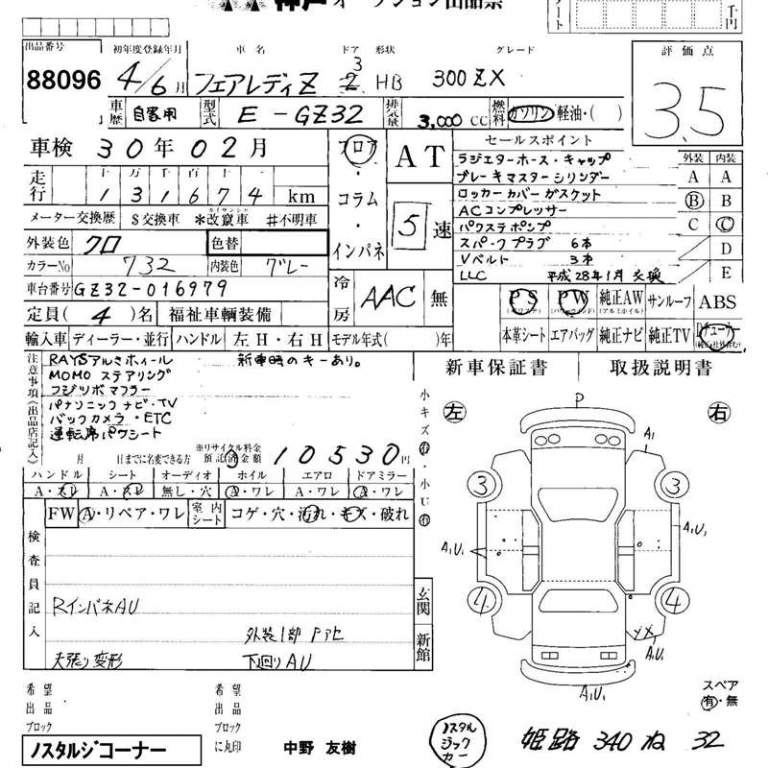 神戸オークション出品票
千円
出品番号 初年度登録年月 車名 ドア 形状 グレード 評価点
88096 4/6月 フェアレディZ 3 2 HB 300ZX 3.5
車歴 自家用 型式 E-GZ32 排気量 3,000 cc 燃料 ガソリン・軽油・( )
車検 30年02月 フロア・コラム・インパネ AT 5速
走行 十 万 千 百 十 一
131674 km
メーター交換歴 $交換車 *改竄車 #不明車
外装色 クロ 色替
カラーNo 732 内装色 グレー
車台番号 GZ32-016979 冷房 AAC 無
定員(4)名 福祉車輌装備
輸入車 ディーラー・並行 ハンドル 左H・右H モデル年式( )年
セールスポイント 外装 内装
ラジエターホース・キャップ A A
ブレーキマスターシリンダー
ロッカーカバーガスケット B B
ACコンプレッサー
パワステポンプ C C
スパークプラグ 6本 D
Vベルト 3本
LLC 平成28年1月 交換 E
PS PW 純正AW サンルーフ ABS
(パワステ) (パワーウインド) (アルミホイル)
本革シート エアバッグ 純正ナビ 純正TV
新車保証書 取扱説明書
注意事項(出品店記入)
RAYSアルミホィール 新車時のキーあり。
MOMO ステアリング
フジツボマフラー
パナソニックナビ・TV
バックカメラ・ETC
運転席パワシート
月 日までに名変できる方 ※リサイクル料金預託済金額 10530円
ハンドル シート オーディオ ホイル エアロ ドアミラー
A・スレ A・スレ 無し・穴 A・ワレ A・ワレ A・ワレ
FW A・リペア・ワレ 室内シート コゲ・穴・汚れ・キズ・破れ
小キズ有・小U有
検査員記入
RインパネAU
外装1部 Pアセ
天張り変形 下回りAU
玄関
新館
P
左 右
A1
3 3
A1U1 A1U1
4 4
XX
A1U1
A1U1
スペア
有・無
希望出品ブロック 希望出品ブロックに丸印
ノスタルジコーナー 中野 友樹
ノスタルジックカー 姫路 340 ね 32